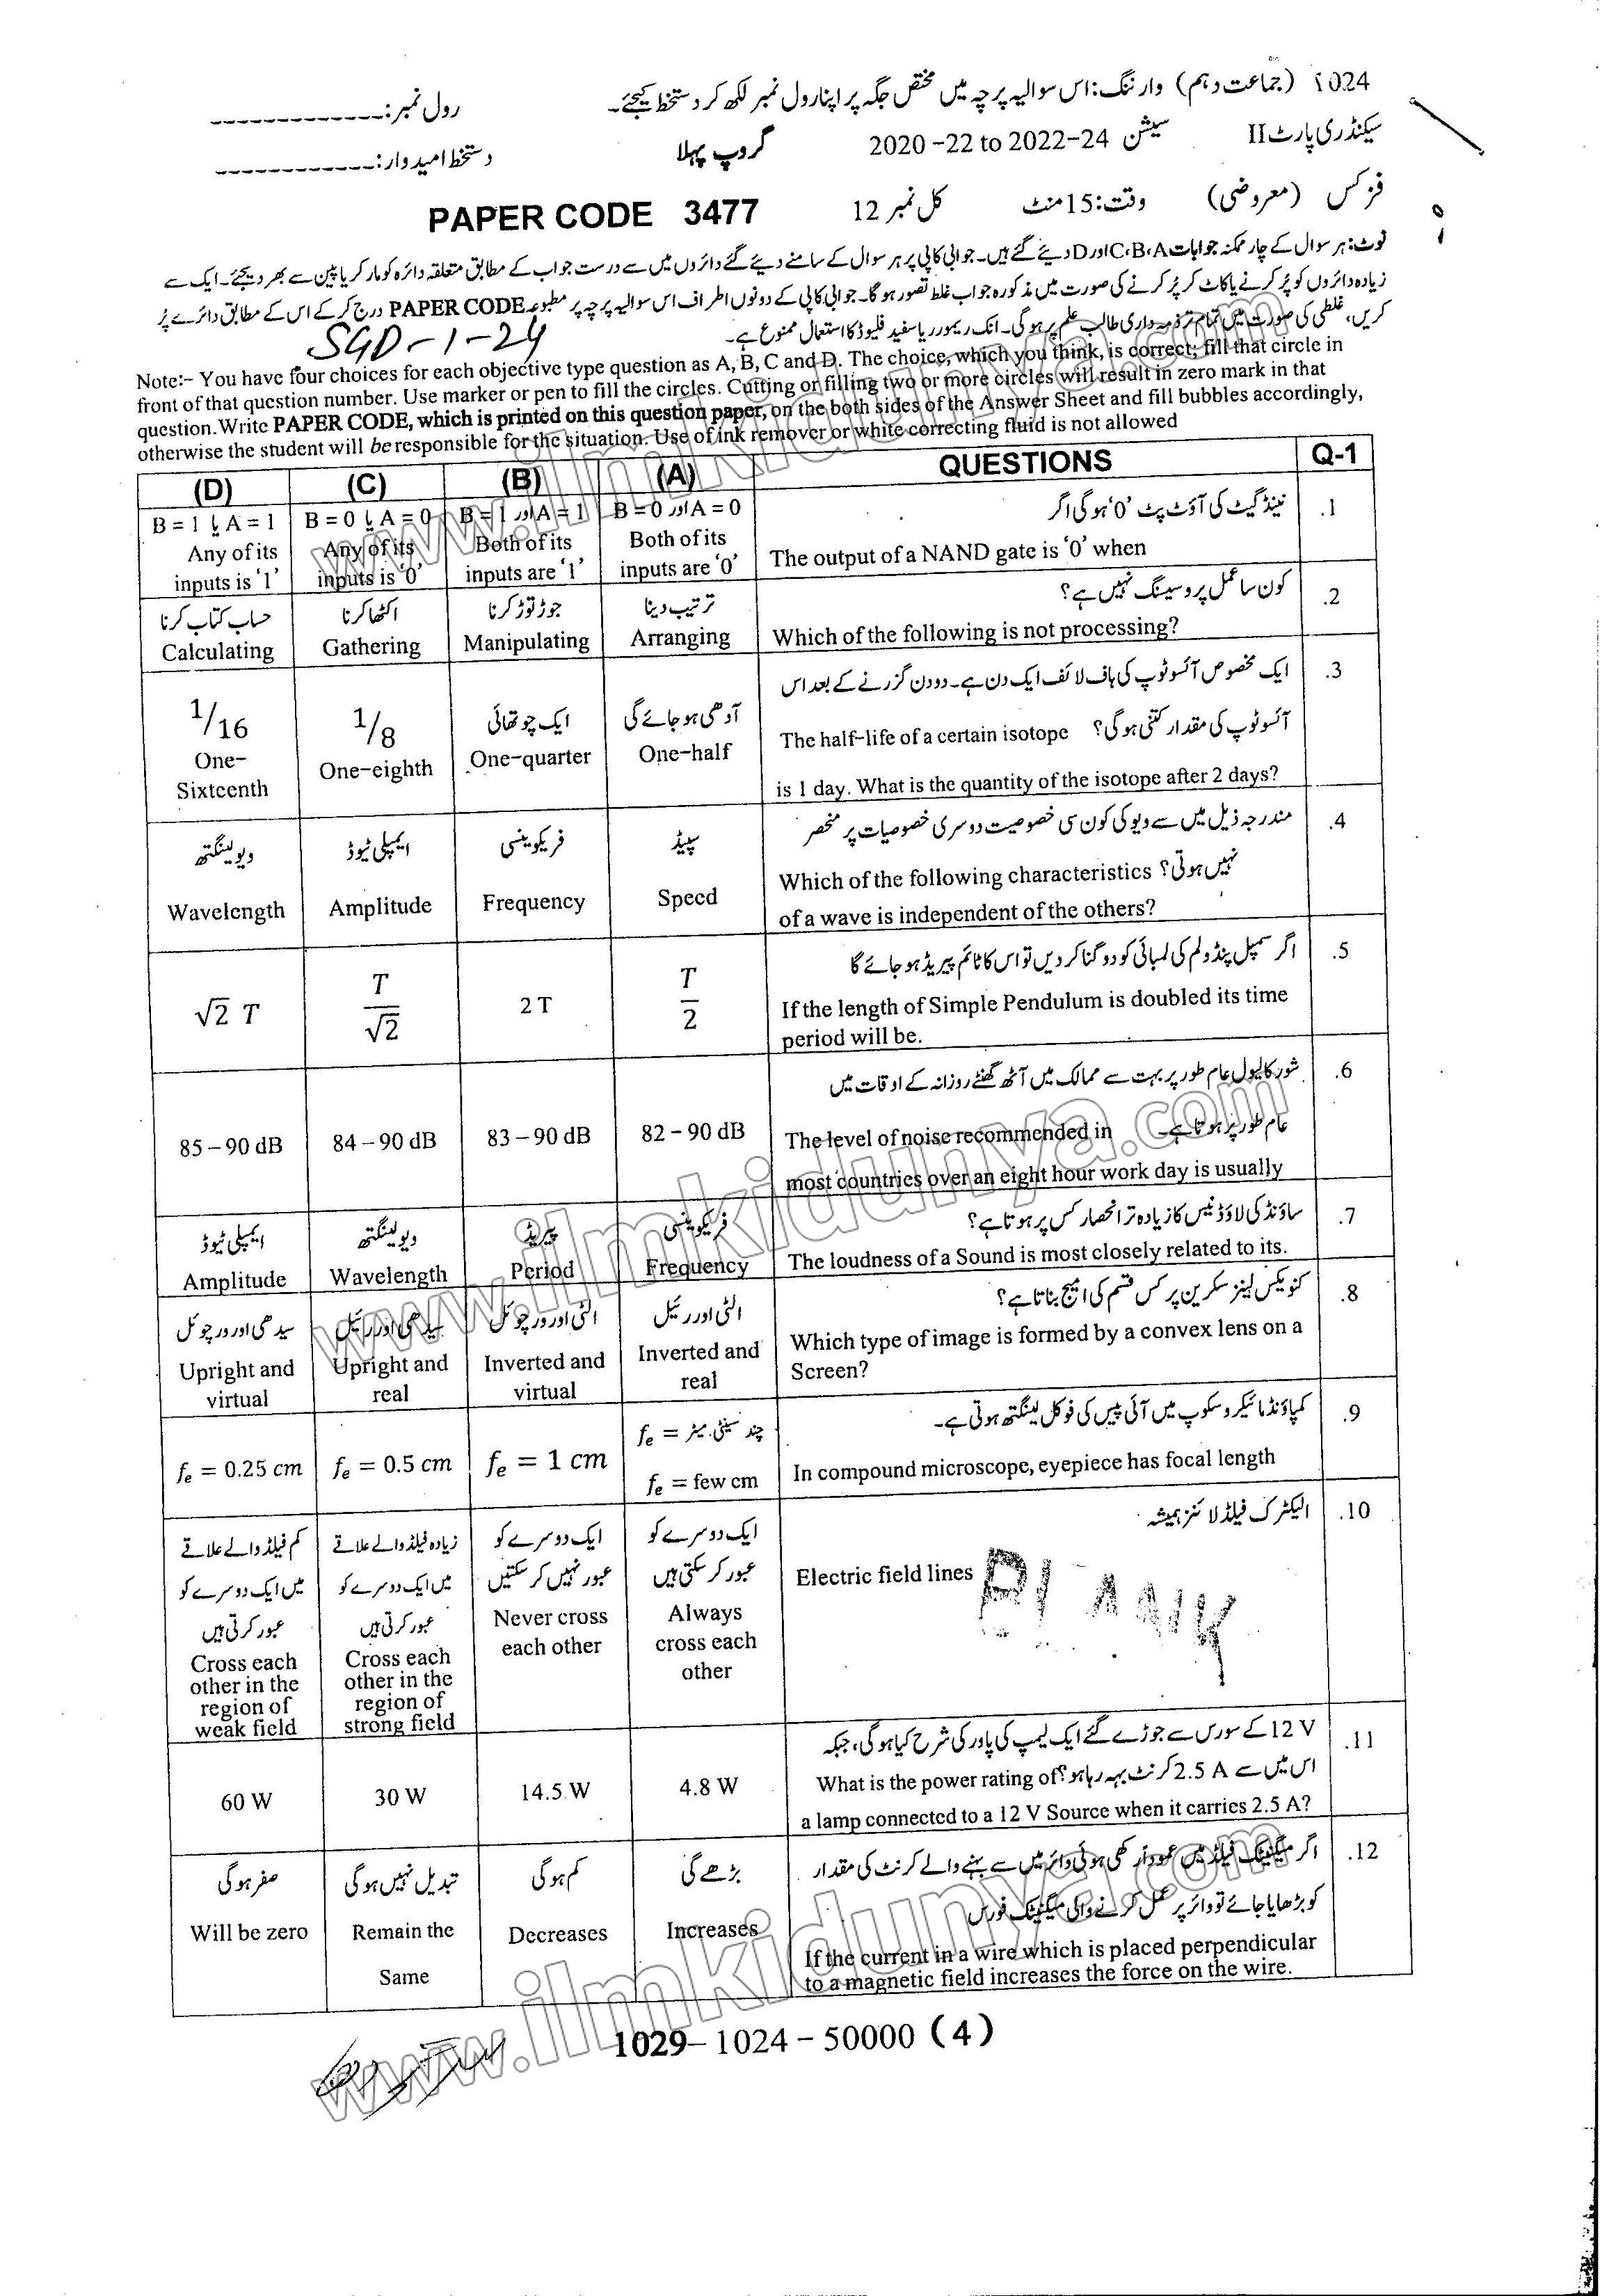 1024 (جماعت دہم) وارننگ: اس سوالیہ پرچہ میں مختص جگہ پر اپنا رول نمبر لکھ کر دستخط کیجئے۔ رول نمبر: -------------
سیکنڈری پارٹ II سیشن 2020 -22 to 2022-24 گروپ پہلا دستخط امیدوار: ------------
فزکس (معروضی) وقت: 15 منٹ کل نمبر 12 PAPER CODE 3477
نوٹ: ہر سوال کے چار ممکنہ جوابات C،B،A اور D دیئے گئے ہیں۔ جوابی کاپی پر ہر سوال کے سامنے دیئے گئے دائروں میں سے درست جواب کے مطابق متعلقہ دائرہ کو مارکر یا پین سے بھر دیجئے۔ ایک سے
زیادہ دائروں کو پُر کرنے یا کاٹ کر پُر کرنے کی صورت میں مذکورہ جواب غلط تصور ہوگا۔ جوابی کاپی کے دونوں اطراف اس سوالیہ پرچہ پر مطبوعہ PAPER CODE درج کر کے اس کے مطابق دائرے پُر
کریں، غلطی کی صورت میں تمام تر ذمہ داری طالب علم پر ہوگی۔ انک ریمور یا سفید فلیوڈ کا استعمال ممنوع ہے۔
SGD-1-24
Note:- You have four choices for each objective type question as A, B, C and D. The choice, which you think, is correct; fill that circle in
front of that question number. Use marker or pen to fill the circles. Cutting or filling two or more circles will result in zero mark in that
question.Write PAPER CODE, which is printed on this question paper, on the both sides of the Answer Sheet and fill bubbles accordingly,
otherwise the student will be responsible for the situation. Use of ink remover or white correcting fluid is not allowed
(D) (C) (B) (A) QUESTIONS Q-1
.1 نینڈ گیٹ کی آؤٹ پٹ '0' ہوگی اگر
The output of a NAND gate is '0' when
A = 0 اور B = 0
Both of its
inputs are '0'
A = 1 اور B = 1
Both of its
inputs are '1'
A = 0 یا B = 0
Any of its
inputs is '0'
A = 1 یا B = 1
Any of its
inputs is '1'
.2 کون سا عمل پروسیسنگ نہیں ہے؟
Which of the following is not processing?
ترتیب دینا
Arranging
جوڑ توڑ کرنا
Manipulating
اکٹھا کرنا
Gathering
حساب کتاب کرنا
Calculating
.3 ایک مخصوص آئسوٹوپ کی ہاف لائف ایک دن ہے۔ دو دن گزرنے کے بعد اس
آئسوٹوپ کی مقدار کتنی ہوگی؟ The half-life of a certain isotope
is 1 day. What is the quantity of the isotope after 2 days?
آدھی ہو جائے گی
One-half
ایک چوتھائی
One-quarter
1/8
One-eighth
1/16
One-
Sixteenth
.4 مندرجہ ذیل میں سے ویو کی کون سی خصوصیت دوسری خصوصیات پر منحصر
نہیں ہوتی؟ Which of the following characteristics
of a wave is independent of the others?
سپیڈ
Speed
فریکوینسی
Frequency
ایمپلی ٹیوڈ
Amplitude
ویولینگتھ
Wavelength
.5 اگر سمپل پنڈولم کی لمبائی کو دوگنا کر دیں تو اس کا ٹائم پیریڈ ہو جائے گا
If the length of Simple Pendulum is doubled its time
period will be.
T/2
2 T
T/√2
√2 T
.6 شور کا لیول عام طور پر بہت سے ممالک میں آٹھ گھنٹے روزانہ کے اوقات میں
عام طور پر ہوتا ہے۔ The level of noise recommended in
most countries over an eight hour work day is usually
82 – 90 dB
83 – 90 dB
84 – 90 dB
85 – 90 dB
.7 ساؤنڈ کی لاؤڈنیس کا زیادہ تر انحصار کس پر ہوتا ہے؟
The loudness of a Sound is most closely related to its.
فریکوینسی
Frequency
پیریڈ
Period
ویولینگتھ
Wavelength
ایمپلی ٹیوڈ
Amplitude
.8 کنویکس لینز سکرین پر کس قسم کی امیج بناتا ہے؟
Which type of image is formed by a convex lens on a
Screen?
الٹی اور رئیل
Inverted and
real
الٹی اور ورچوئل
Inverted and
virtual
سیدھی اور رئیل
Upright and
real
سیدھی اور ورچوئل
Upright and
virtual
.9 کمپاؤنڈ مائیکروسکوپ میں آئی پیس کی فوکل لینگتھ ہوتی ہے۔
In compound microscope, eyepiece has focal length
چند سینٹی میٹر = fe
fe = few cm
fe = 1 cm
fe = 0.5 cm
fe = 0.25 cm
.10 الیکٹرک فیلڈ لائنز ہمیشہ
Electric field lines
BLANK
ایک دوسرے کو
عبور کر سکتی ہیں
Always
cross each
other
ایک دوسرے کو
عبور نہیں کر سکتیں
Never cross
each other
زیادہ فیلڈ والے علاقے
میں ایک دوسرے کو
عبور کرتی ہیں
Cross each
other in the
region of
strong field
کم فیلڈ والے علاقے
میں ایک دوسرے کو
عبور کرتی ہیں
Cross each
other in the
region of
weak field
.11 12 V کے سورس سے جوڑے گئے ایک لیمپ کی پاور کی شرح کیا ہوگی، جبکہ
اس میں سے 2.5 A کرنٹ بہہ رہا ہو؟ What is the power rating of
a lamp connected to a 12 V Source when it carries 2.5 A?
4.8 W
14.5 W
30 W
60 W
.12 اگر میگنیٹک فیلڈ میں عموداً رکھی ہوئی وائر میں سے بہنے والے کرنٹ کی مقدار
کو بڑھایا جائے تو وائر پر عمل کرنے والی میگنیٹک فورس
If the current in a wire which is placed perpendicular
to a magnetic field increases the force on the wire.
بڑھے گی
Increases
کم ہوگی
Decreases
تبدیل نہیں ہوگی
Remain the
Same
صفر ہوگی
Will be zero
1029– 1024 – 50000 (4)
www.ilmkidunya.com
www.ilmkidunya.com
www.ilmkidunya.com